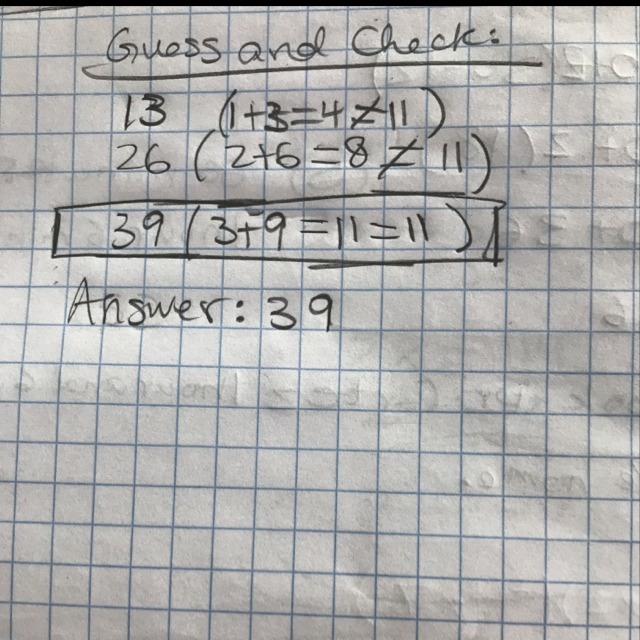 Guess and Check:
13 (1+3=4≠11)
26 (2+6=8≠11)
39 (3+9=11=11)
Answer: 39